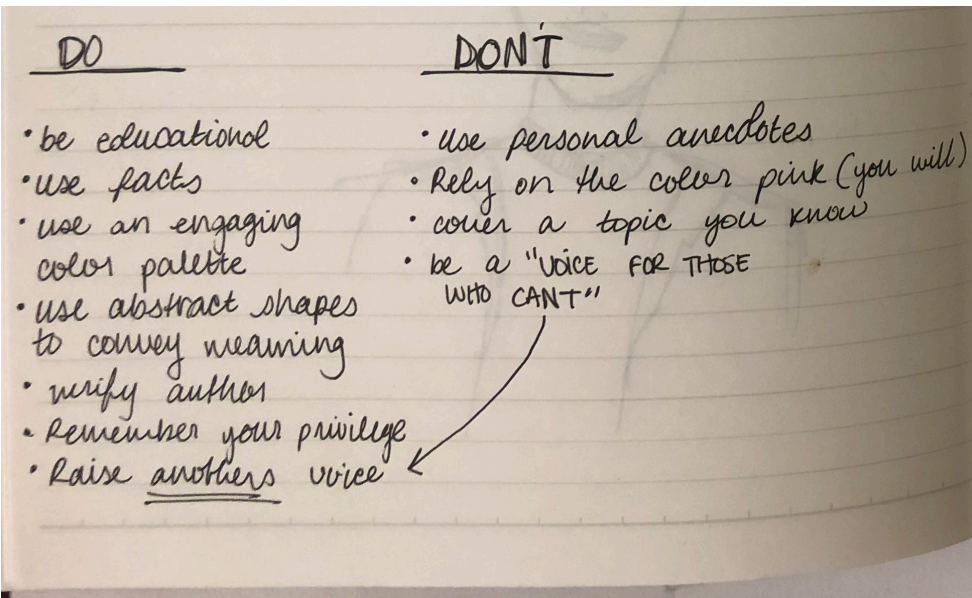 DO
• be educational
• use facts
• use an engaging
color palette
• use abstract shapes
to convey meaning
• verify author
• Remember your privilege
• Raise anothers voice
DON'T
• use personal anecdotes
• Rely on the color pink (you will)
• cover a topic you know
• be a "VOICE FOR THOSE
WHO CANT"